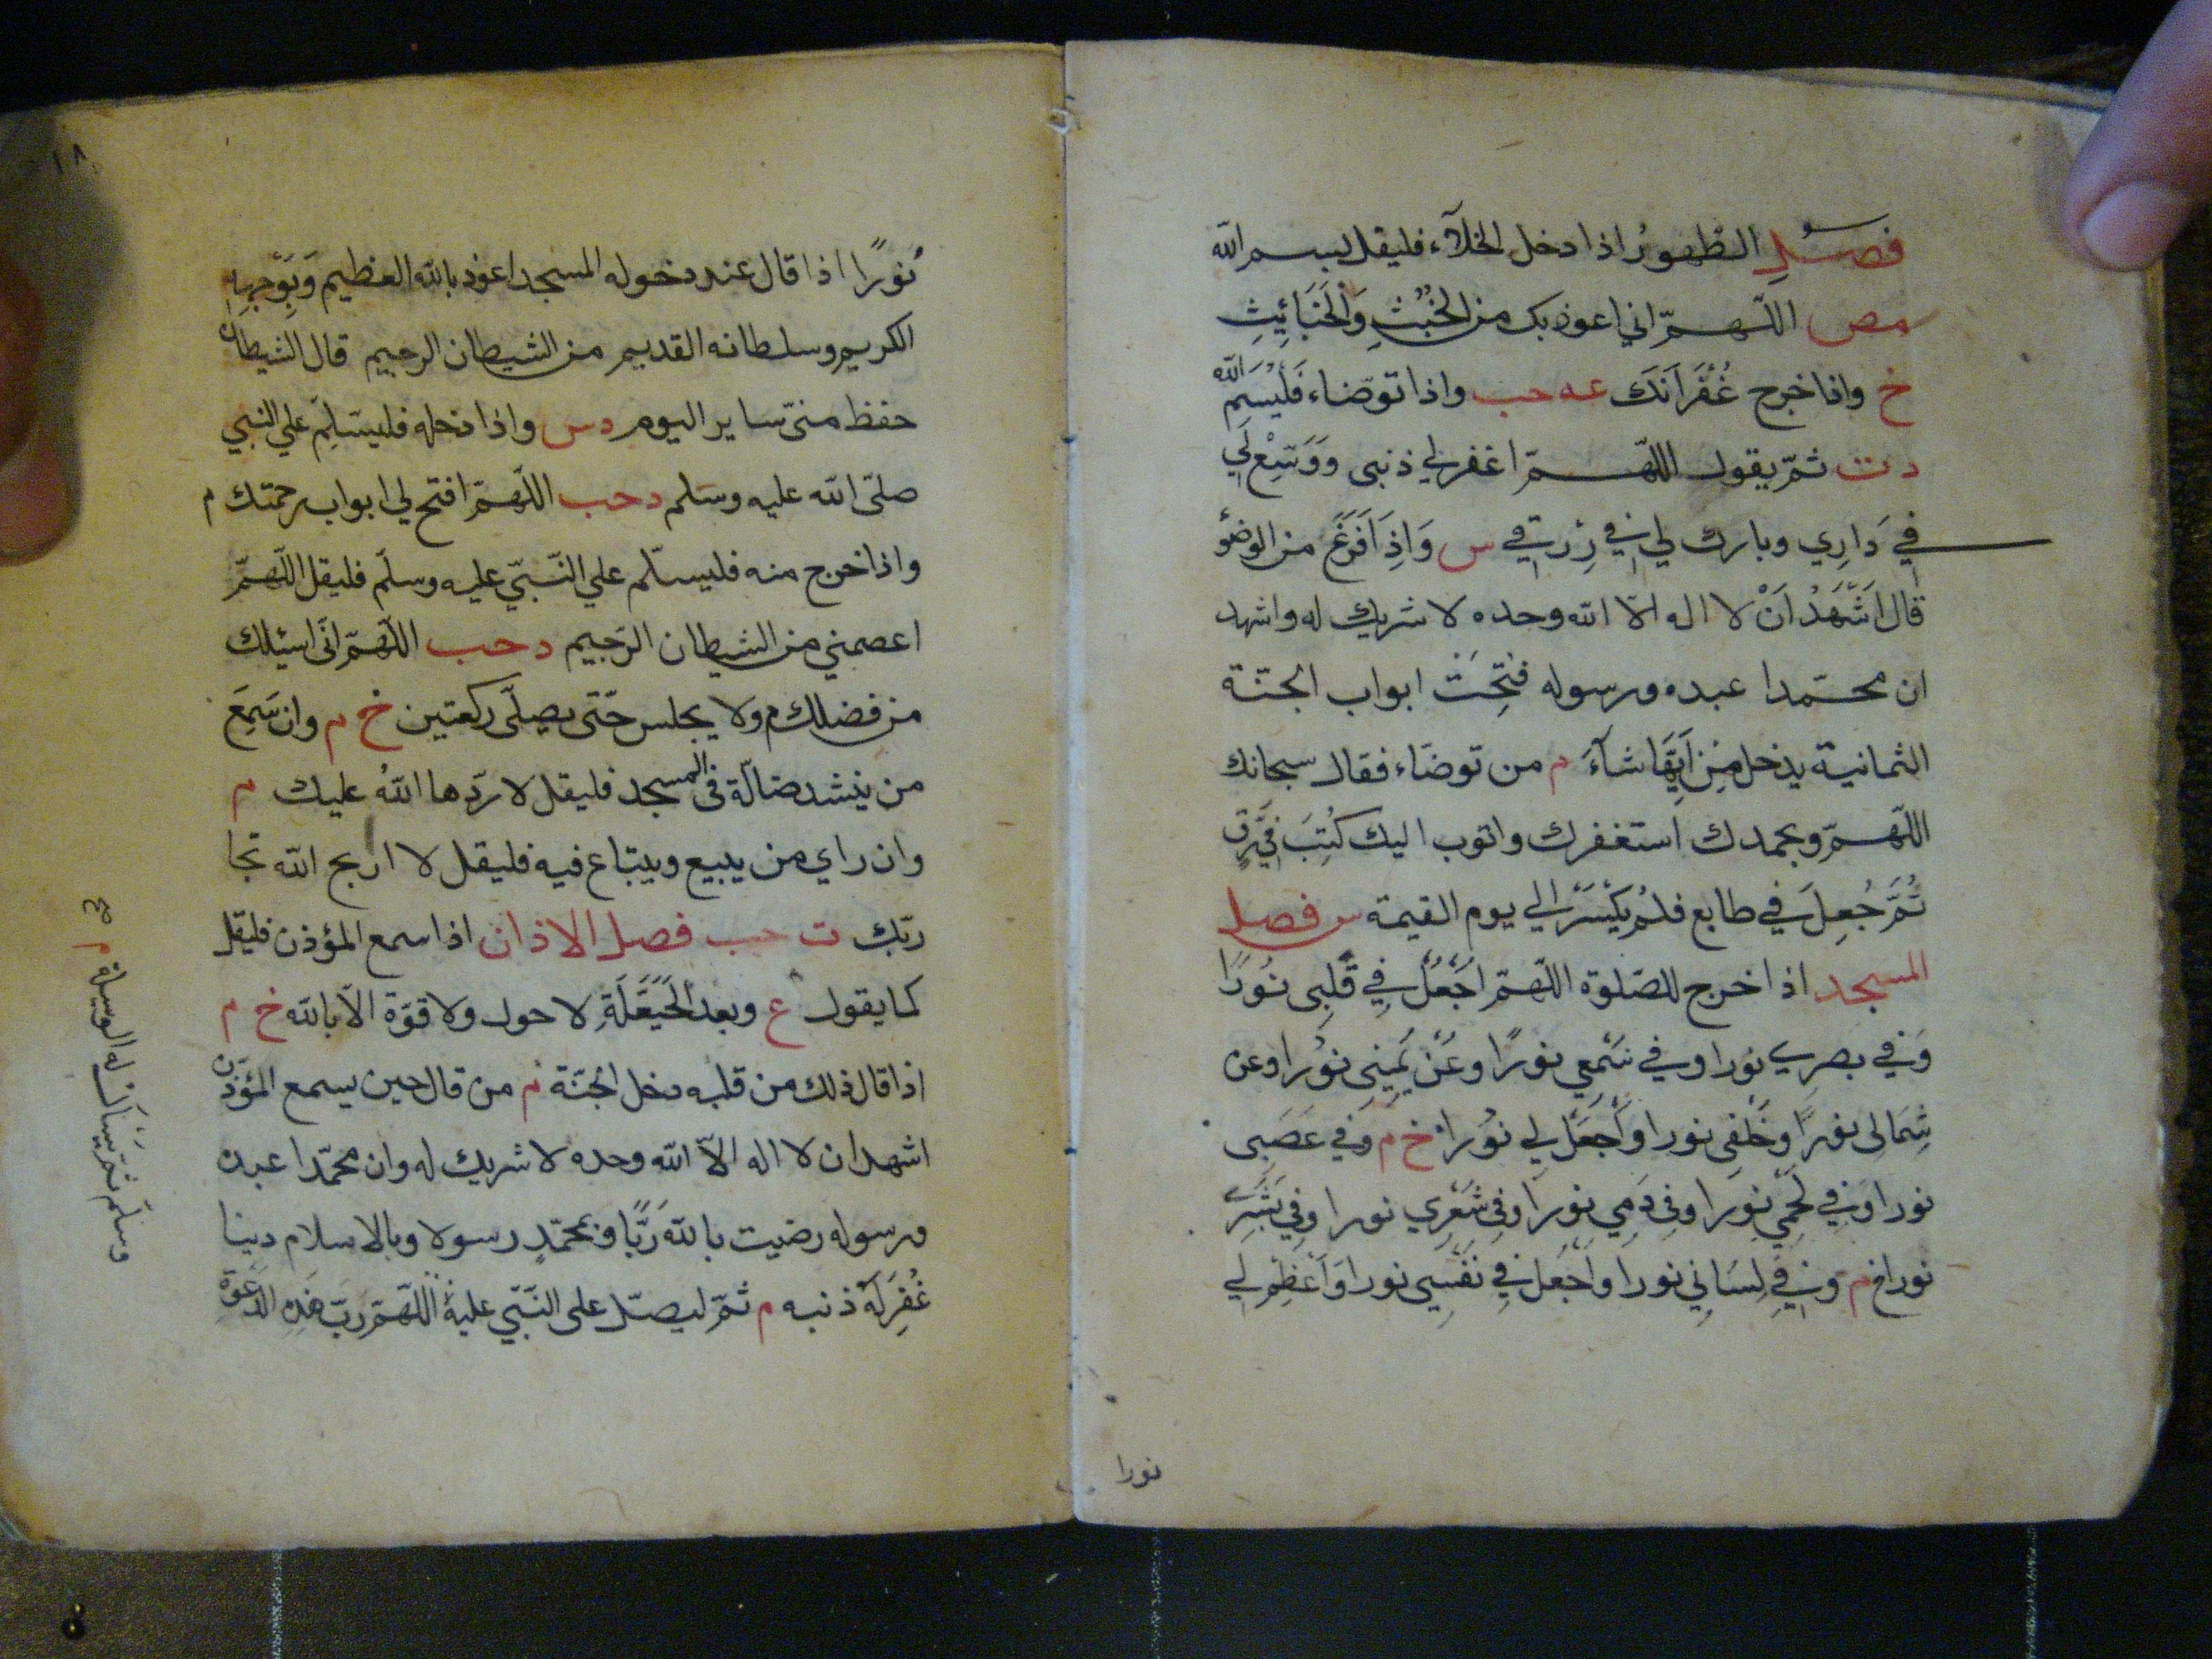 فصل الطهور اذا دخل الخلآء فليقل بسم الله
مص اللّهمّ اني اعوذ بك من الخُبُثِ وَالْخَبَائِيِثِ
خ واذا خرج غُفْرَانَكَ عه حب واذا توضّاء فَلْيُسَمِّ الله
د ت ثمّ يقول اللّهمّ اغفر لي ذنبى وَوَسِّعْ لي
في دَارِي وبارك لي في رِزقي س وَاِذَا فَرَغَ من الوضؤ
قال اَشْهَدُ اَنْ لا اله الّا الله وحده لا شريك له واشهد
ان محمّدا عبده ورسوله فُتِحَتْ ابواب الجنّة
الثمانية يدخل مِنْ اَيِّهَا شآءَ م من توضّاء فقال سبحانك
اللّهمّ وبحمدك استغفرك واتوب اليك كُتِبَ فِي رَقٍّ
ثُمَّ جُعِلَ في طابع فلمْ يُكْسَرْ الي يوم القيمة س فصل
المسجد اذا خرج للصّلوة اللّهمّ اجْعَلْ فِي قَلْبِى نُورًا
وَفي بصري نورا وفي سَمْعِي نورًا وعَنْ يَمِينِى نوُرا وعن
شِمَالِى نورًا وخَلْفِى نورا وَاَجْعَلْ لِي نوُرا خ م وَفي عَصَبِى
نورا وَفِي لَحْمِي نورًا وفِى دَمِي نورًا وفي شَعْرِي نورا وفِي بَشَرِي
نورا خ م وفِي لِسَانِي نورا واَجْعَل فِي نَفْسِي نورا وَاَعْظِمْ لِي
نورا
١٨
نُورًا اذا قال عند دخوله المسجد اعوذ بالله العظيم وَبِوَجْهِهِ
الكريم وسلطانه القديم من الشيطان الرجيم قال الشيطان
حفظ منىّ ساير اليوم د س واذا دخله فليسّلِمّ علي النبي
صلّى الله عليه وسلم د حب اللّهمّ افتح لي ابواب رحمتك م
واذا خرج منه فليسلّم علي النّبيّ عليه وسلّم فليقل اللّهمّ
اعصمني من الشيطان الرّجيم د حب اللّهمّ انّى اسئلك
من فضلك م ولا يجلس حتّى يصلّى ركعتين خ م وان سَمِعَ
من ينشد ضالّة فى المسجد فليقل لا ردّها اللهُ عليك م
وان راي من يبيع ويبتاع فيه فليقل لا اربح الله تجا
رتك ت حب فصل الاذان اذا سمع المؤذن فليقل
كما يقول ع وبعد الْحَيْعَلَةِ لا حول ولا قوّة الّا بالله خ م
اذا قال ذلك من قلبه دخل الجنّة م من قال حين يسمع المؤذن
اشهد ان لا اله الّا الله وحده لا شريك له وان محمّدا عبده
ورسوله رضيت بالله رَبًّا وبمحمّدٍ رسولا وبالاسلام دينا
غُفِرَ لَهُ ذنبه م ثمّ ليصلّ على النّبّي عليه اللّهمّ ربّ هَذِهِ الدَّعْوَةِ
وسلّم ثمّ يَسْأَلُ له الوسيلة م صح